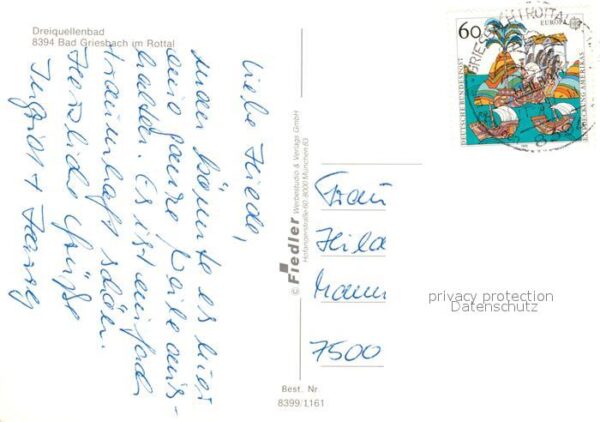 Dreiquellenbad
8394 Bad Griesbach im Rottal
Liebe Heide,
man könnte es hier
eine ganze Weile aus-
halten. Es ist einfach
traumhaft schön.
Herzliche Grüße
Ingrid + 
© Fiedler Werbestudio & Verlags GmbH
8000 München 83
Best. Nr.
8399/1161
60
EUROPA
DEUTSCHE BUNDESPOST
ENTDECKUNG AMERIKAS
GRIESBACH I ROTTAL
Frau
Heide
Mann
7500
privacy protection
Datenschutz